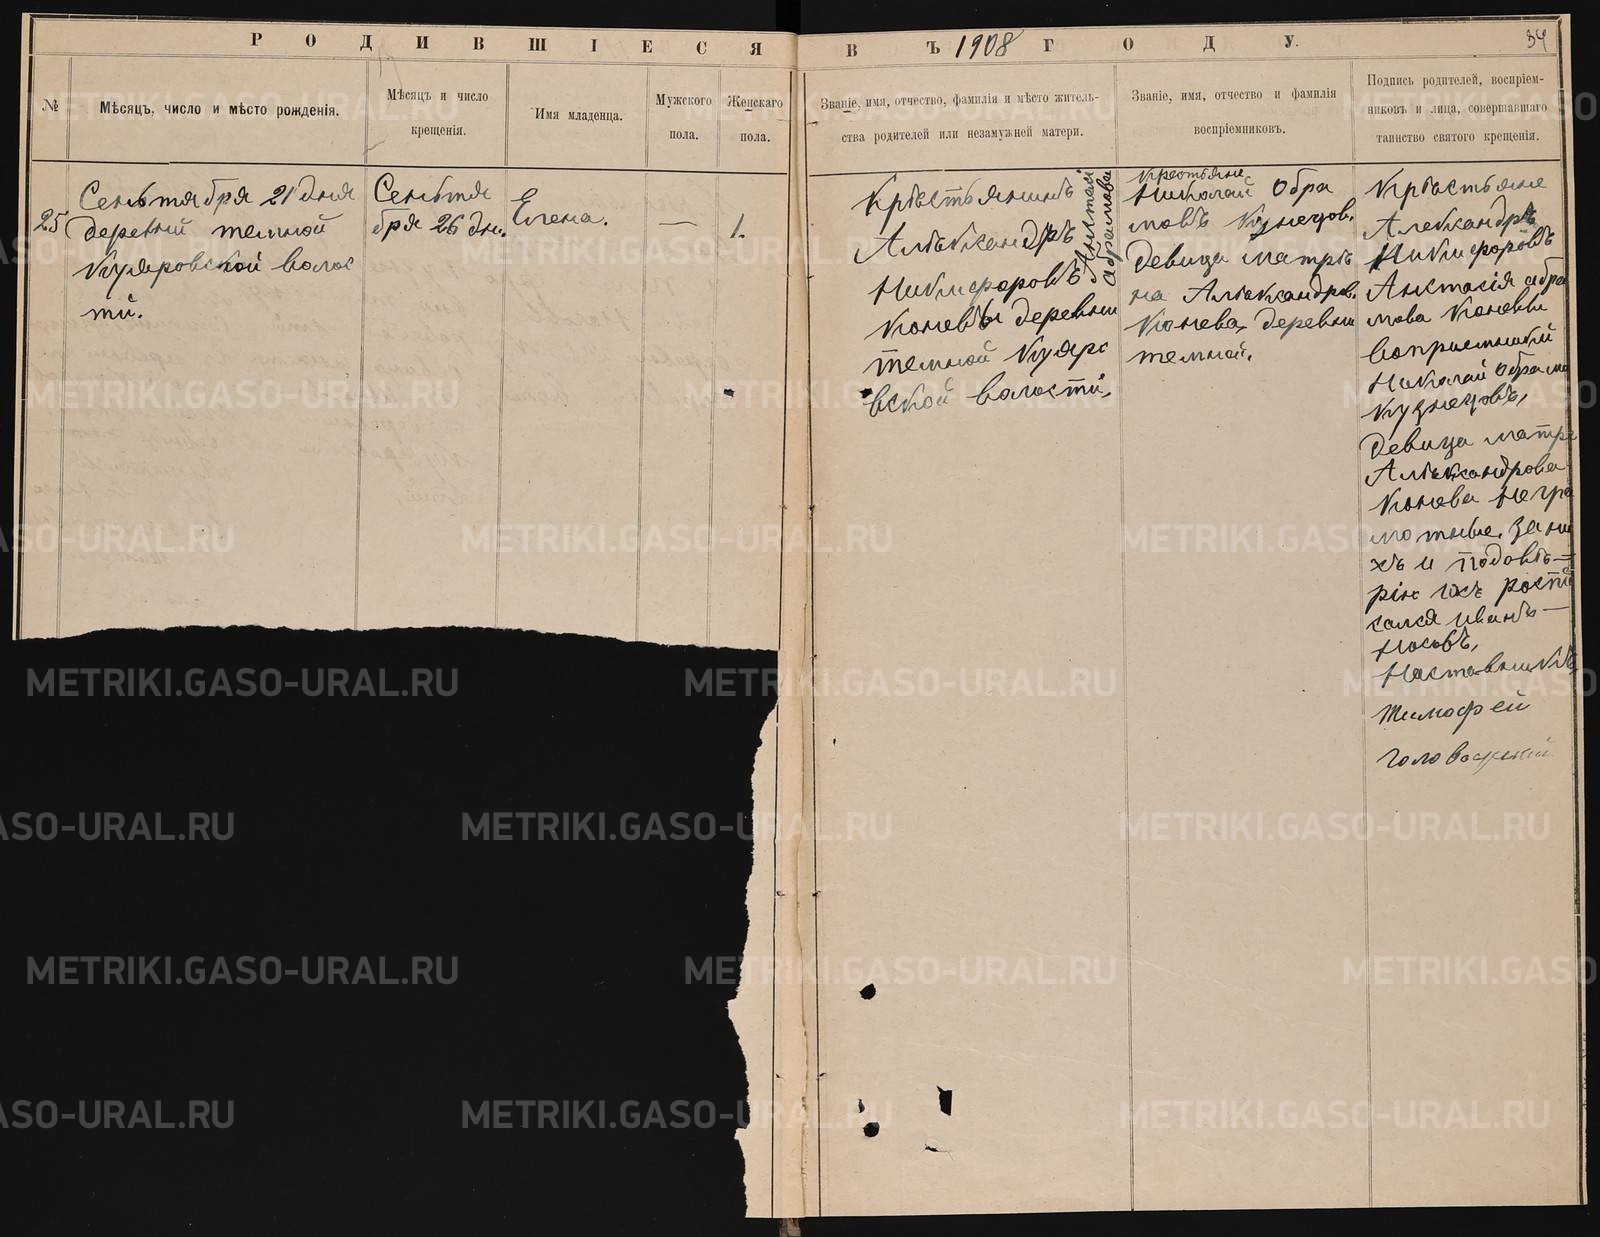 РОДИВШІЕСЯ ВЪ 1908 ГОДУ.
34
№
Мѣсяцъ, число и мѣсто рожденія.
Мѣсяцъ и число
крещенія.
Имя младенца.
Мужского
пола.
Женскаго
пола.
Званіе, имя, отчество, фамилія и мѣсто житель-
ства родителей или незамужней матери.
Званіе, имя, отчество и фамилія
воспріемниковъ.
Подпись родителей, воспріем-
никовъ и лица, совершавшаго
таинство святого крещенія.
25
Сеньтября 21 дня
деревни темной
Куяровской волос
ти.
Сеньтя
бря 26 дн.
Елена.
—
1.
Крѣстьянинъ
Алѣксандръ
Никифоровъ
Коневъ деревни
темной Куяро
вской волости,
Абрамова
Крестьяне
Николай Обра
мовъ Кузнецов.
Девица матрѣ
на Алѣксандров.
Конева, деревни
темной.
Крѣстьяне
Александръ
Никифоровъ
Анстасія абра
мова Коневы
воприемники
Николай Обрамо
Кузнецовъ,
Девица матрѣ
Алѣксандрова
Конева негра
мотные, за ни
хъ и подовѣ-
рію ихъ роспи
сался иванъ
Носовъ,
Наставникъ
Тимофей
METRIKI.GASO-URAL.RU